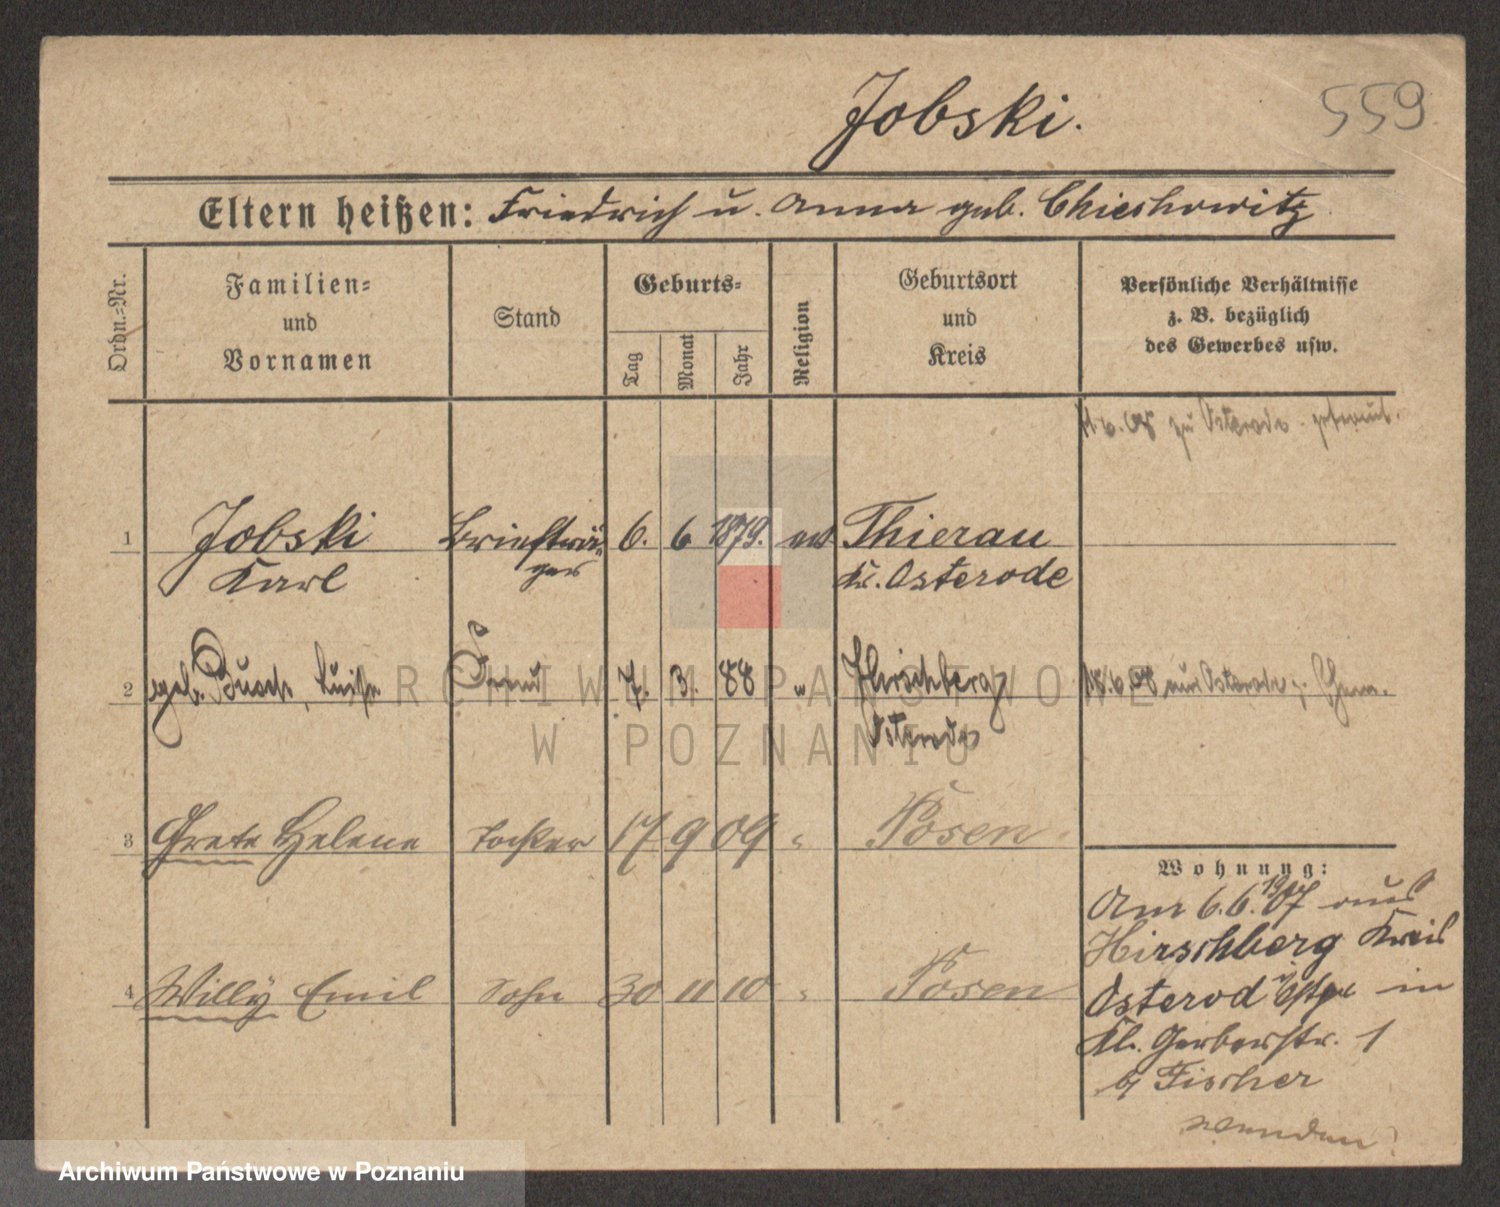 Jobski.
559
Eltern heißen: Friedrich u. Anna geb. Chieskowitz
Ordn.=Nr.
Familien=
und
Vornamen
Stand
Geburts=
Tag
Monat
Jahr
Religion
Geburtsort
und
Kreis
Persönliche Verhältnisse
z. B. bezüglich
des Gewerbes usw.
6.08 zu Osterode getraut.
1 Jobski Briefträ= 6. 6 1879. ev Thierau
Karl ger Kr. Osterode
2 geb. Busch, Luise Frau 7. 3. 88 " Hirschberg 18.6.08 aus Osterode
Osterode
3 Grete Helene Tochter 17 9 09 " Posen
Wohnung:
Am 6.6.1907 aus
Hirschberg Kreis
4 Willy Emil Sohn 30 11 10 " Posen
Osterod i/Ostpr in
Kl. Gerberstr. 1
b/ Fischer
wenden!
ARCHIWUM PAŃSTWOWE
W POZNANIU
Archiwum Państwowe w Poznaniu